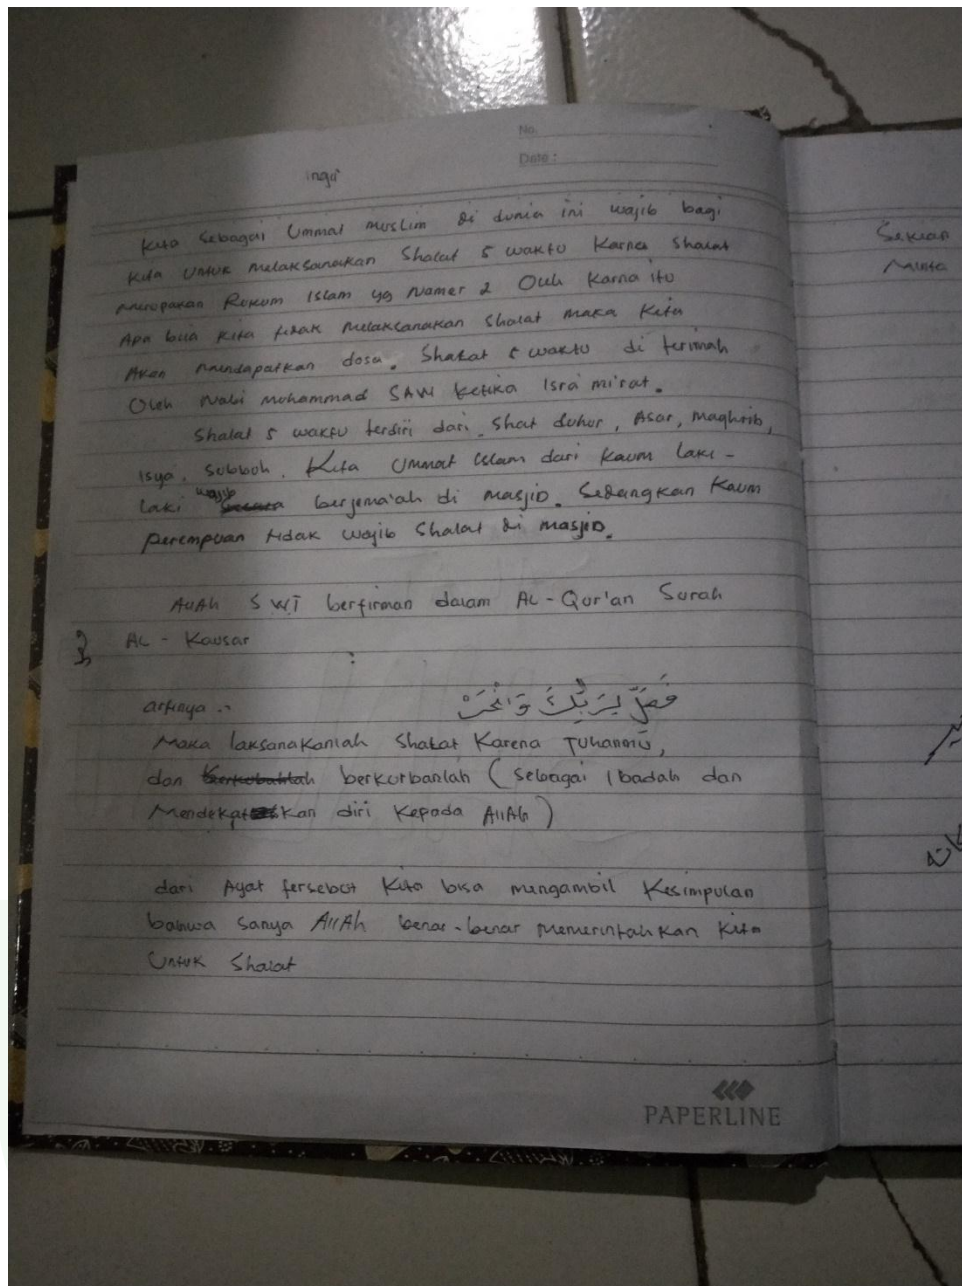 No.
Date:
inga
Kita Sebagai Ummat muslim di dunia ini wajib bagi
Kita Untuk melaksanakan Shalat 5 waktu Karna Shalat
merupakan Rokum Islam yg Namer 2 Oleh Karna itu
Apa bila Kita tidak melaksanakan Shalat maka Kita
Akan mendapatkan dosa. Shalat 5 waktu di terimah
Oleh Nabi Mohammad SAW ketika Isra mi'rat.
Shalat 5 waktu terdiri dari. Shat duhur, Asar, maghrib,
Isya, Subboh. Kita Ummat Islam dari Kaum laki-
laki wajib berjema'ah di masjid. Sedangkan Kaum
perempuan tidak wajib Shalat di masjid.
AllAh SWT berfirman dalam AL-Qur'an Surah
AL-Kausar :
فَصَلِّ لِرَبِّكَ وَانْحَرْ
artinya :
Maka laksanakanlah Shalat Karena Tuhanmu,
dan berkorbanlah (sebagai Ibadah dan
Mendekatkan diri Kepada AllAh)
dari Ayat tersebut Kita bisa mengambil Kesimpulan
bahwa sanya AllAh benar-benar memerintahkan Kita
Untuk Shalat
PAPERLINE
Sekian
Minta